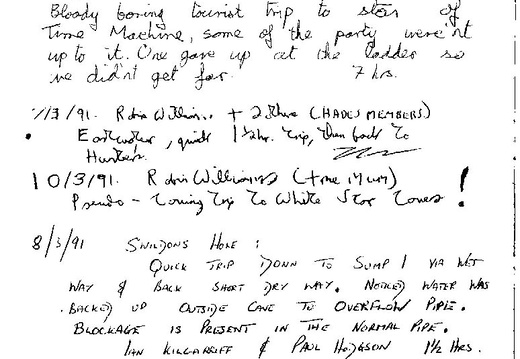 Bloody boring tourist trip to start of
Time Machine, some of the party weren't
up to it. One gave up at the ladder so
we didn't get far. 7 hrs.
/3/91. Robin Williams + 2 (HADES MEMBERS)
Eastwater, quick 1½hr. trip, then back to
Hunters.
10/3/91. Robin Williams (+ me Mum)
Pseudo - Touring trip to White Star !
8/3/91 SWILDONS HOLE :
QUICK TRIP DOWN TO SUMP 1 VIA WET
WAY & BACK SHORT DRY WAY. NOTICED WATER WAS
BACKED UP OUTSIDE CAVE TO OVERFLOW PIPE.
BLOCKAGE IS PRESENT IN THE NORMAL PIPE.
IAN KILGARRIFF & PAUL HODGSON 1½ HRS.